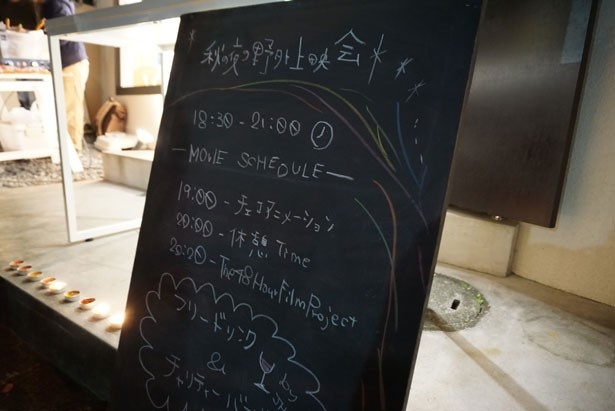 秋の夜の野外上映会
18:30-21:00
-MOVIE SCHEDULE-
19:00-チェコアニメーション
20:00-休憩Time
20:20-The48HourFilmProject
フリードリンク
&
チャリティーバ